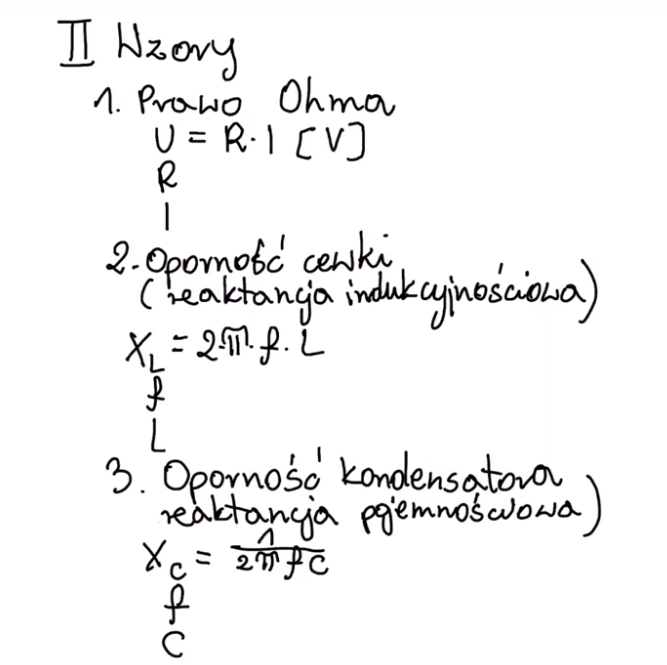 II Wzory
1. Prawo Ohma
U = R·I [V]
R
I
2. Oporność cewki
(reaktancja indukcyjnościowa)
X_L = 2·π·f·L
f
L
3. Oporność kondensatora
reaktancja pojemnościowa)
X_C = 1/2πfC
f
C